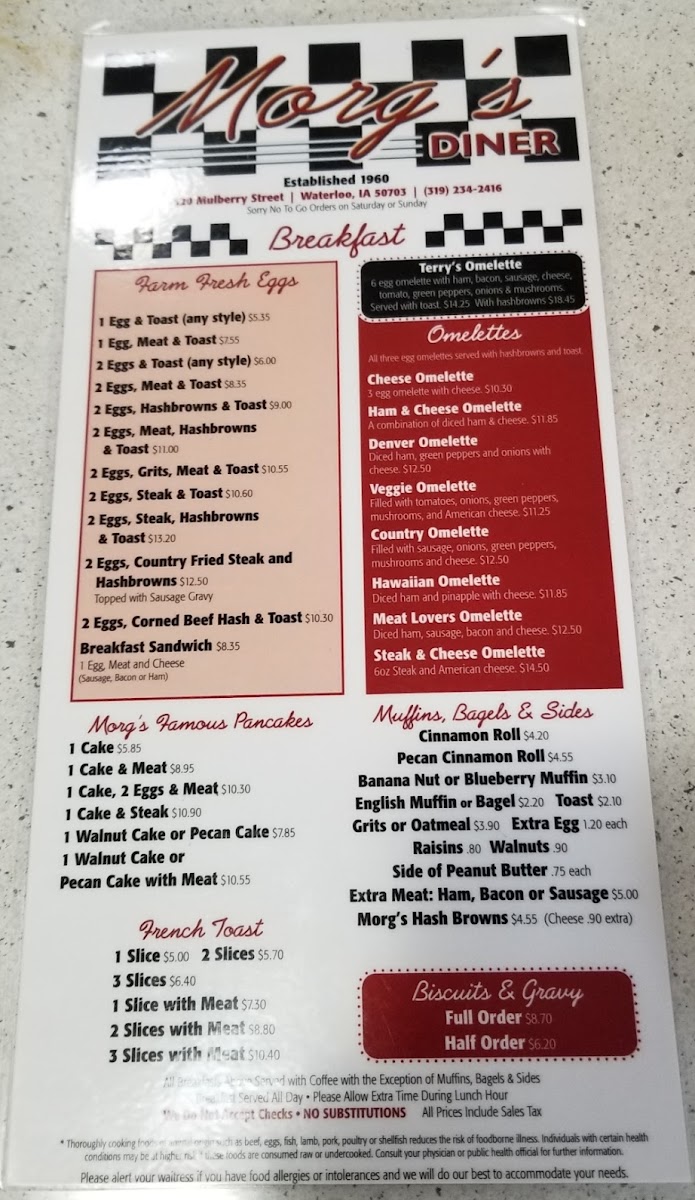 Morg's
DINER
Established 1960
20 Mulberry Street | Waterloo, IA 50703 | (319) 234-2416
Sorry No To Go Orders on Saturday or Sunday
Breakfast
Farm Fresh Eggs
1 Egg & Toast (any style) $5.35
1 Egg, Meat & Toast $7.55
2 Eggs & Toast (any style) $6.00
2 Eggs, Meat & Toast $8.35
2 Eggs, Hashbrowns & Toast $9.00
2 Eggs, Meat, Hashbrowns
& Toast $11.00
2 Eggs, Grits, Meat & Toast $10.55
2 Eggs, Steak & Toast $10.60
2 Eggs, Steak, Hashbrowns
& Toast $13.20
2 Eggs, Country Fried Steak and
Hashbrowns $12.50
Topped with Sausage Gravy
2 Eggs, Corned Beef Hash & Toast $10.30
Breakfast Sandwich $8.35
1 Egg, Meat and Cheese
(Sausage, Bacon or Ham)
Terry's Omelette
6 egg omelette with ham, bacon, sausage, cheese,
tomato, green peppers, onions & mushrooms.
Served with toast. $14.25 With hashbrowns $18.45
Omelettes
All three egg omelettes served with hashbrowns and toast.
Cheese Omelette
3 egg omelette with cheese. $10.30
Ham & Cheese Omelette
A combination of diced ham & cheese. $11.85
Denver Omelette
Diced ham, green peppers and onions with
cheese. $12.50
Veggie Omelette
Filled with tomatoes, onions, green peppers,
mushrooms, and American cheese. $11.25
Country Omelette
Filled with sausage, onions, green peppers,
mushrooms and cheese. $12.50
Hawaiian Omelette
Diced ham and pinapple with cheese. $11.85
Meat Lovers Omelette
Diced ham, sausage, bacon and cheese. $12.50
Steak & Cheese Omelette
6oz Steak and American cheese. $14.50
Morg's Famous Pancakes
1 Cake $5.85
1 Cake & Meat $8.95
1 Cake, 2 Eggs & Meat $10.30
1 Cake & Steak $10.90
1 Walnut Cake or Pecan Cake $7.85
1 Walnut Cake or
Pecan Cake with Meat $10.55
French Toast
1 Slice $5.00 2 Slices $5.70
3 Slices $6.40
1 Slice with Meat $7.30
2 Slices with Meat $8.80
3 Slices with Meat $10.40
Muffins, Bagels & Sides
Cinnamon Roll $4.20
Pecan Cinnamon Roll $4.55
Banana Nut or Blueberry Muffin $3.10
English Muffin or Bagel $2.20 Toast $2.10
Grits or Oatmeal $3.90 Extra Egg 1.20 each
Raisins .80 Walnuts .90
Side of Peanut Butter .75 each
Extra Meat: Ham, Bacon or Sausage $5.00
Morg's Hash Browns $4.55 (Cheese .90 extra)
Biscuits & Gravy
Full Order $8.70
Half Order $6.20
All Served with Coffee with the Exception of Muffins, Bagels & Sides
Served All Day • Please Allow Extra Time During Lunch Hour
We Do Not Accept Checks • NO SUBSTITUTIONS All Prices Include Sales Tax
* Thoroughly cooking foods such as beef, eggs, fish, lamb, pork, poultry or shellfish reduces the risk of foodborne illness. Individuals with certain health
conditions may be at higher risk if these foods are consumed raw or undercooked. Consult your physician or public health official for further information.
Please alert your waitress if you have food allergies or intolerances and we will do our best to accommodate your needs.